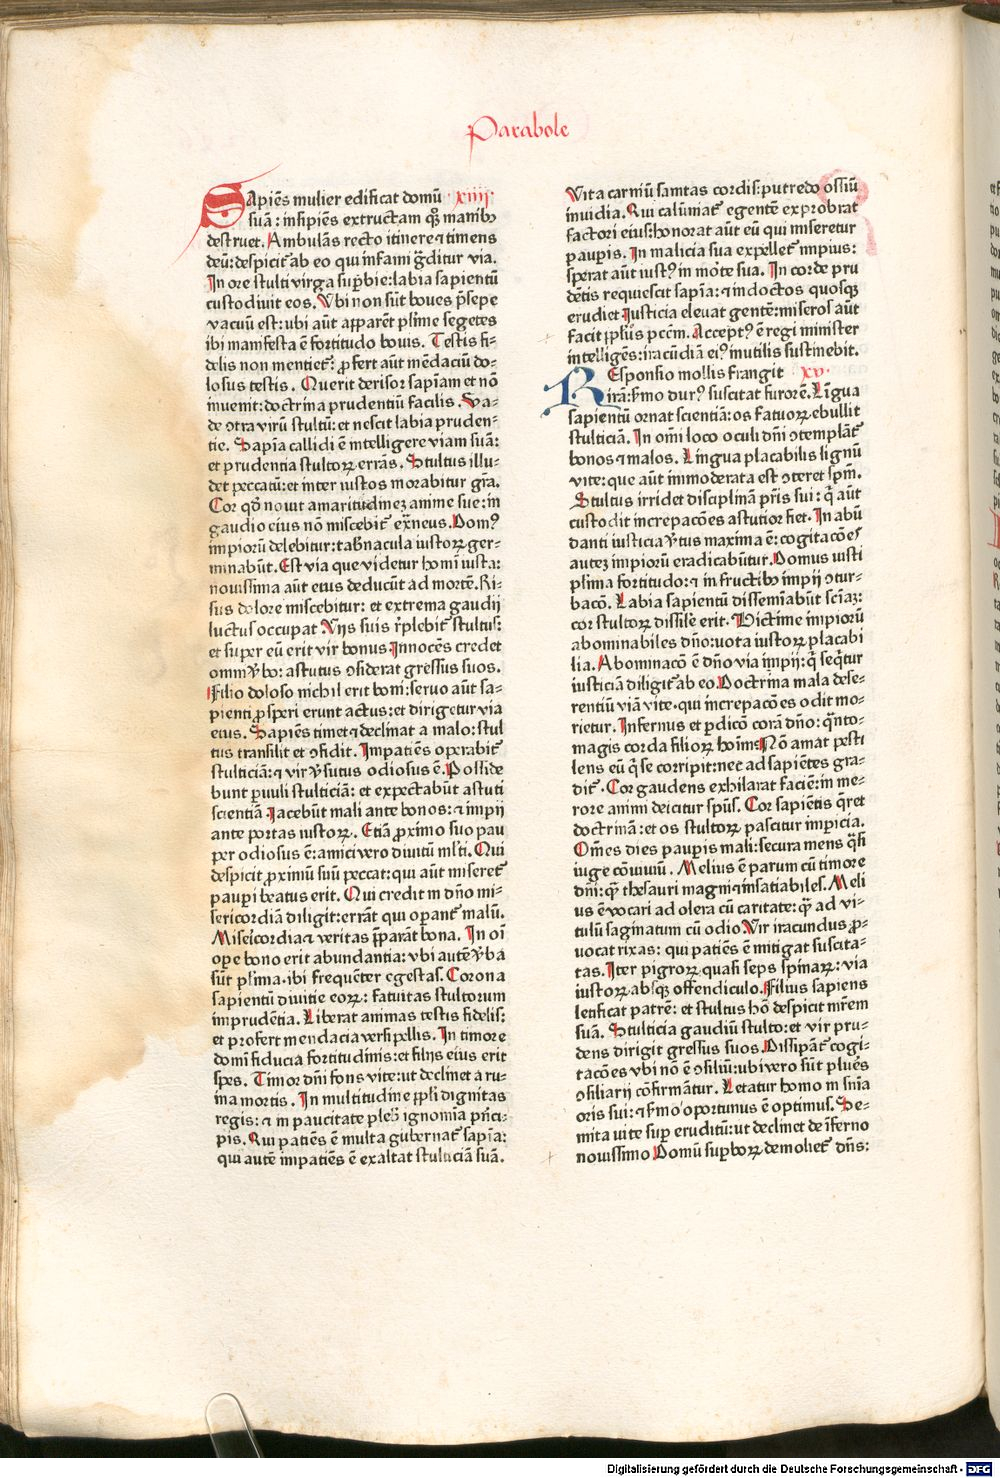 Parabole
Sapiẽs mulier edificat domũ · xiiij·
suã : insipiẽs extructam qꝫ manibꝫ
destruet. Ambulãs recto itinere ⁊ timens
deũ: despicit᷑ ab eo qui infami g̃ditur via.
In ore stulti virga suꝑbie: labia sapientũ
custodiunt eos. Vbi non sũt boues p̃sepe
vacuũ est: ubi aũt apparẽt pl̃ime segetes
ibi manifesta ẽ fortitudo bouis. Testis fi-
delis non mentiet᷑: ꝓfert aũt mẽdaciũ do-
losus testis. Querit derisor sapiam et nõ
inuenit: doctrina prudentiũ facilis. Va-
de ꝯtra virũ stultũ: et nescit labia pruden-
tie. Sapiã callidi ẽ intelligere viam suã:
et prudentia stultoꝝ errãs. Stultus illu-
det peccatũ: et inter iustos morabitur gr̃a.
Cor qđ nouit amaritudinez anime sue: in
gaudio eius nõ miscebit᷑ ex̃neus. Domꝰ
impiorũ delebitur: tab̃nacula iustoꝝ ger-
minabũt. Est via que videtur homĩ iusta:
nouissima aũt eius deducũt ad mortẽ. Ri-
sus dolore miscebitur: et extrema gaudij
luctus occupat. Vijs suis r̃plebit᷑ stultus:
et super eũ erit vir bonus. Innocẽs credet
omni v̾bo: astutus ꝯsiderat gressus suos.
Filio doloso nichil erit boni: seruo aũt sa-
pienti ꝓsperi erunt actus: et dirigetur via
eius. Sapiẽs timet ⁊ declinat a malo: stul
tus transilit et ꝯfidit. Impatiẽs operabit᷑
stulticiã: ⁊ vir v̾sutus odiosus ẽ. Posside
bunt ꝑuuli stulticiã: et expectabũt astuti
scientiã. Iacebũt mali ante bonos: ⁊ impij
ante portas iustoꝝ. Etiã ꝓximo suo pau
per odiosus ẽ: amici vero diuitũ ml̃ti. Qui
despicit ꝓximũ suũ peccat: qui aũt miseret᷑
pauꝑi beatus erit. Qui credit in dño mi-
sericordiã diligit: errãt qui oꝑant᷑ malũ.
Misericordia ⁊ veritas p̃parãt bona. In oĩ
oꝑe bono erit abundantia: vbi autẽ v̾ba
sũt pl̃ima. ibi frequẽter egestas. Corona
sapientũ diuitie eoꝝ: fatuitas stultorum
imprudẽtia. Liberat animas testis fidelis:
et profert mendacia versipellis. In timore
domĩ fiducia fortitudinis: et filijs eius erit
spes. Timor dñi fons vite: ut declinet a ru-
ina mortis. In multitudine ppl̃i dignitas
regis: ⁊ in paucitate pleb̃ ignomĩa prĩci-
pis. Qui patiẽs ẽ multa gubernat᷑ sapĩa:
qui autẽ impatiẽs ẽ exaltat stulticiã suã.
Vita carniũ sanitas cordis: putredo ossiũ
inuidia. Qui calũmat᷑ egentẽ exprobrat
factori eius: honorat aũt eũ qui miseretur
pauꝑis. In malicia sua expellet᷑ impius:
sperat aũt iustꝰ in mõte sua. In corde pru
dẽtis requiescit sapĩa: ⁊ indoctos quosqꝫ
erudiet. Iusticia eleuat gentẽ: miseros aũt
facit ppl̃us pccm̃. Acceptꝰ ẽ regi minister
intelligẽs: iracũdiã eiꝰ inutilis sustinebit.
REsponsio mollis frangit · xv·
irã: s̾mo durꝰ suscitat furorẽ. Lĩgua
sapientũ ornat scientiã: os fatuoꝝ ebullit
stulticiã. In om̃i loco oculi dñi ꝯtemplãt᷑
bonos ⁊ malos. Lingua placabilis lignũ
vite: que aũt immoderata est ꝯteret sp̃m.
Stultus irridet disciplinã pr̃is sui: q̃ aũt
custodit increpacões astutior fiet. In abũ
danti iusticia v̾tus maxima ẽ: cogitacões
autez impiorũ eradicabũtur. Domus iusti
pl̃ima fortitudo: ⁊ in fructibꝫ impij ꝯtur-
bacõ. Labia sapientũ dissemĩabũt sciãz:
cor stultoꝝ dissil̃e erit. Victime impiorũ
abominabiles dño: uota iustoꝝ placabi
lia. Abominacõ ẽ dño via impij: q̃ seq̃tur
iusticiã diligit᷑ ab eo. Doctrina mala dese-
rentiũ viã vite. qui increpacões odit mo-
rietur. Infernus et ꝑdicõ corã dño: q̃nto-
magis corda filioꝝ hoim̃. Nõ amat pesti
lens eũ q̃ se corripit: nec ad sapiẽtes gra-
dit᷑. Cor gaudens exhilarat faciẽ: in me-
rore animi deicitur sp̃us. Cor sapiẽtis q̃ret
doctrinã: et os stultoꝝ pascitur impicia.
Om̃es dies pauꝑis mali: secura mens q̃si
iuge cõuiuiũ. Melius ẽ parum cũ timore
dñi: q̃ thesauri magni ⁊ insatiabiles. Meli
us ẽ vocari ad olera cũ caritate: q̃ ad vi-
tulũ saginatum cũ odio. Vir iracundus ꝓ-
uocat rixas: qui patiẽs ẽ mitigat suscita-
tas. Iter pigroꝝ quasi seps spinaꝝ: via
iustoꝝ absqꝫ offendiculo. Filius sapiens
letificat patrẽ: et stultus hõ despicit mr̃em
suã. Stulticia gaudiũ stulto: et vir pru-
dens dirigit gressus suos. Dissipãt᷑ cogi-
tacões vbi nõ ẽ ꝯsiliũ: ubi vero sũt plures
ꝯsiliarij cõfirmãtur. Letatur homo in sñia
oris sui: ⁊ s̾mo oportunus ẽ optimus. Se-
mita uite suꝑ eruditũ: ut declinet de ĩferno
nouissimo. Domũ suꝑboꝝ demoliet᷑ dñs:
Digitalisierung gefördert durch die Deutsche Forschungsgemeinschaft - DFG